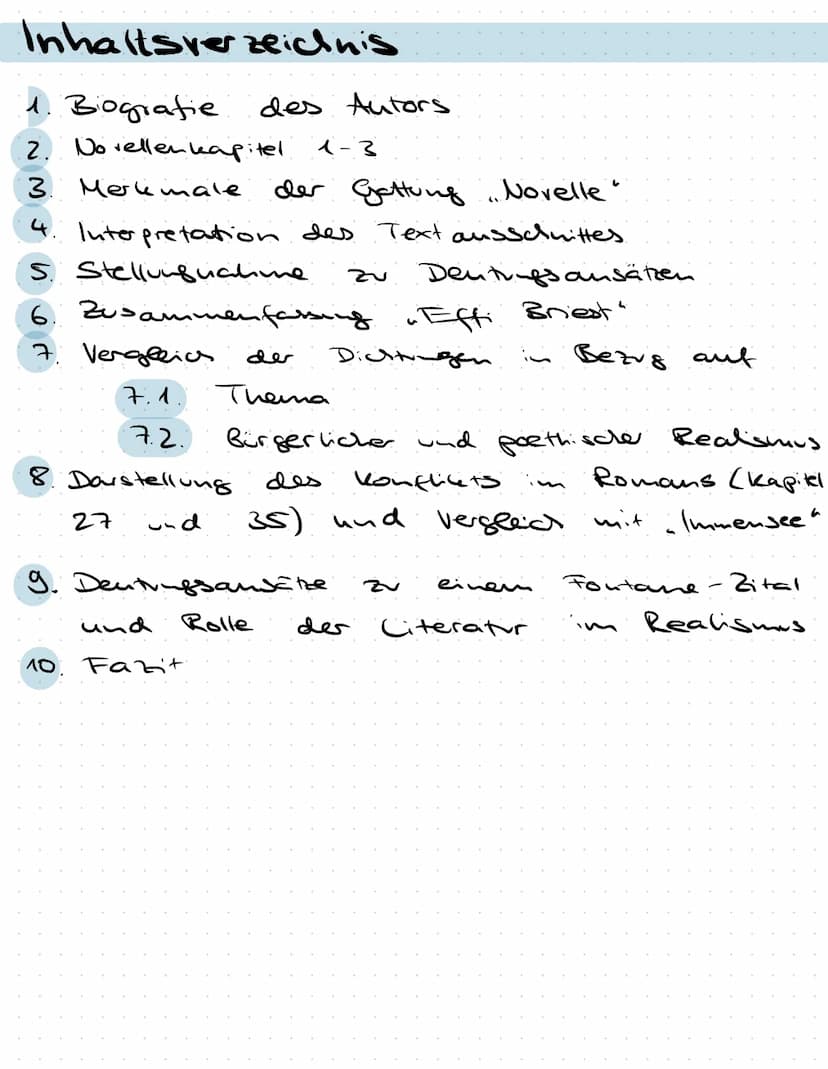 Inhaltsverzeichnis
1. Biografie des Autors
2. Novellenkapitel 1-3
3. Merkmale der Gattung „Novelle“
4. Interpretation des Textausschnittes
5. Stellungnahme zu Deutungsansätzen
6. Zusammenfassung „Effi Briest“
7. Vergleich der Dichtungen in Bezug auf
7.1. Thema
7.2. Bürgerlicher und poethischer Realismus
8. Darstellung des Konflikts im Romans (Kapitel
27 und 35) und Vergleich mit „Immensee“
9. Deutungsansätze zu einem Fontane-Zitat
und Rolle der Literatur im Realismus
10. Fazit